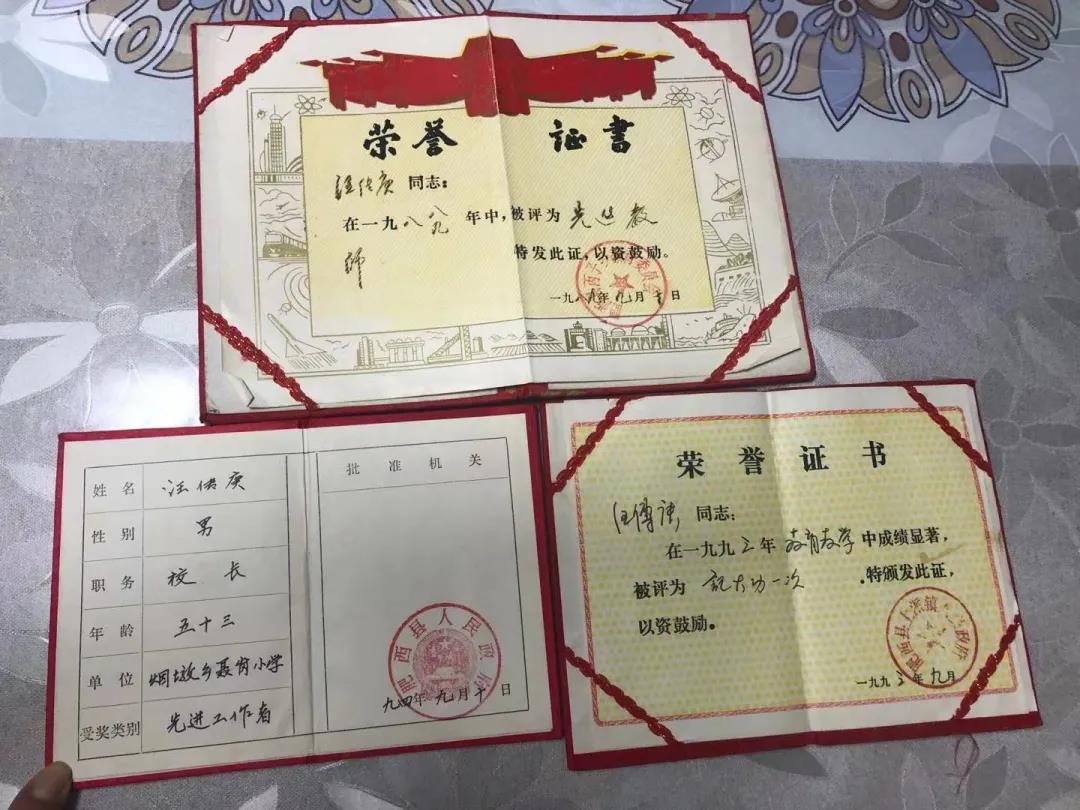 荣誉 证书
汪传庚 同志：
在一九八八九年中，被评为先进教
师 特发此证，以资鼓励。
一九八九年九月十日
姓名 汪传庚
性别 男
职务 校长
年龄 五十三
单位 烟墩乡聂岗小学
受奖类别 先进工作者
批准机关
肥西县人民政府
九四年九月十日
荣誉证书
汪传庚 同志：
在一九九三年教育教学中成绩显著，
被评为 记大功一次 特颁发此证，
以资鼓励。
肥西县上派镇
一九九三年九月